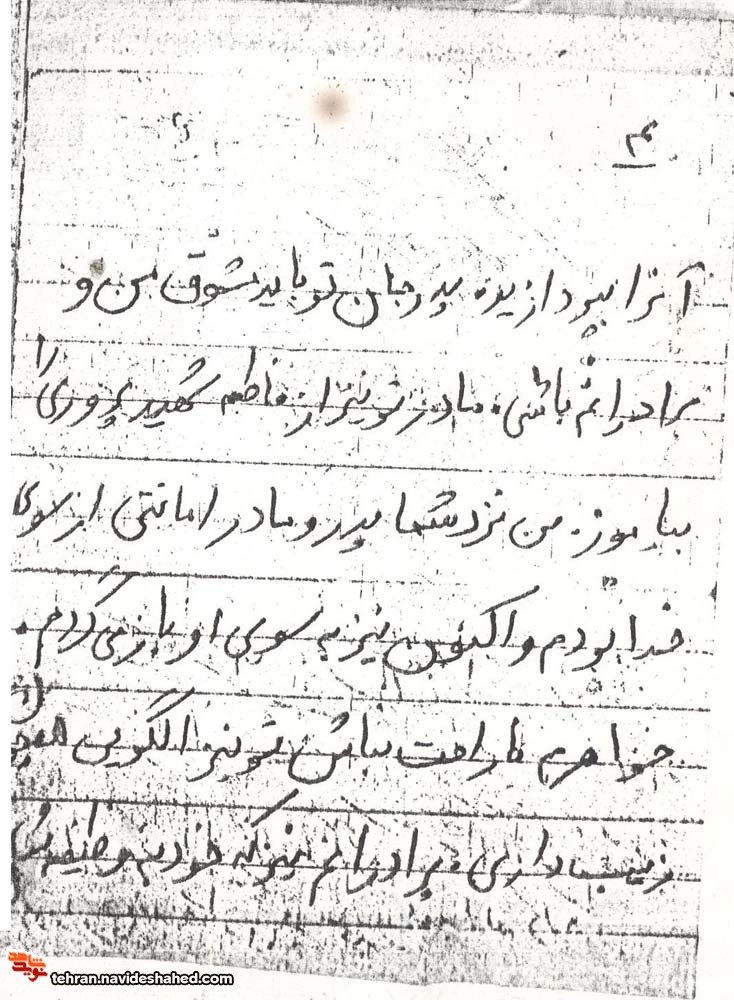 ۳
آنرا بپردازید. پدر جان تو باید مشوق من و
برادرانم باشی. مادر تو نیز از فاطمه شهید پروری را
بیاموز. من نزد شما پدر و مادر امانتی از سوی
خدا بودم و اکنون نیز به سوی او باز می گردم.
خواهرم ناراحت نباش تو نیز الگویی
زینب داری. برادرانم نیز که خود به وظیفه
نوید شاهد
tehran.navideshahed.com